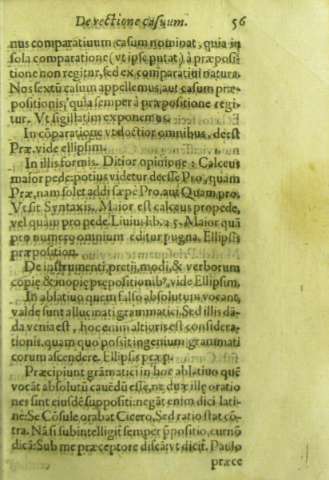 De rectione casuum. 56
nus comparatiuum casum nominat, quia in
sola comparatione (vt ipse putat) à præposi-
tione non regitur, sed ex comparatiui natura.
Nos sextū casum appellemus, aut casum præ-
positionis, quia semper à præpositione regi-
tur. Vt sigillatim exponemus.
In cōparatione vt doctior omnibus, deest
Præ, vide ellipsim.
In illis formis. Ditior opinione: Calceus
maior pede: potius videtur deesse Pro, quam
Præ, nam solet addi sæpè Pro, aut Quam pro.
Vt sit Syntaxis. Maior est calceus pro pede,
vel quam pro pede. Liuius lib. 25. Maior quā
pro numero omnium editur pugna. Ellipsis
præposition.
De instrumenti, pretij, modi, & verborum
copię & inopię prępositionib9, vide Ellipsim.
In ablatiuo quem falso absolutum vocant,
valde sunt allucinati grammatici. Sed illis dā-
da venia est, hoc enim altioris est considera-
tionis, quam quo possit ingenium grammati
corum ascendere. Ellipsis præp.
Præcipiunt grāmatici in hoc ablatiuo quē
vocāt absolutū cauēdū esse, ne duæ illę oratio
nes sint eiusdē suppositi: negāt enim dici lati-
nè: Se Cōsule orabat Cicero, Sed ratio stat cō-
tra. Nā si subintelligit semper p̄positio, cur nō
dicā: Sub me præceptore discāt vt dicit. Paulo
præce